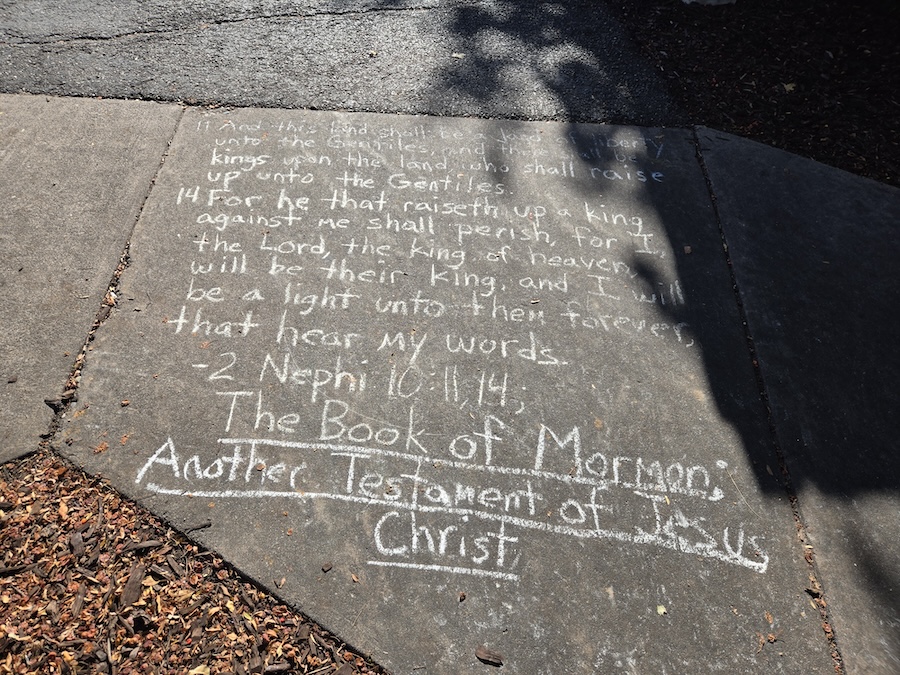 11 And this land shall be a land of liberty
unto the Gentiles, and there shall be
kings upon the land, who shall raise
up unto the Gentiles.
14 For he that raiseth up a king
against me shall perish, for I,
the Lord, the king of heaven,
will be their king, and I will
be a light unto them forever,
that hear my words.
-2 Nephi 10:11,14;
The Book of Mormon;
Another Testament of Jesus
Christ